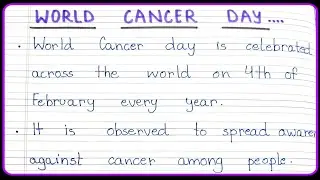 WORLD CANCER DAY....
. World Cancer day is celebrated
across the world on 4th of
February every year.
. It is observed to spread aware
against cancer among people.